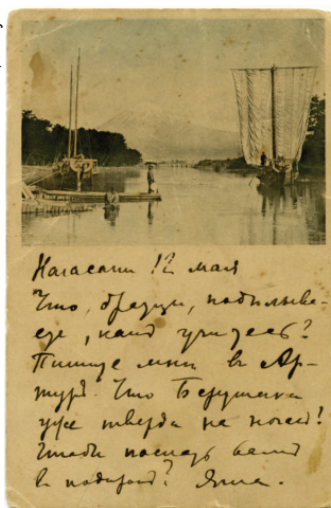 Нагасаки 12 мая
Что, братцы, подѣлывае-
те, какъ учитесь?
Пишите мнѣ въ Ар-
туръ. Что Верушка
уже тверда на ногахъ?
Чтобы послать вамъ
въ подарокъ? Яша.